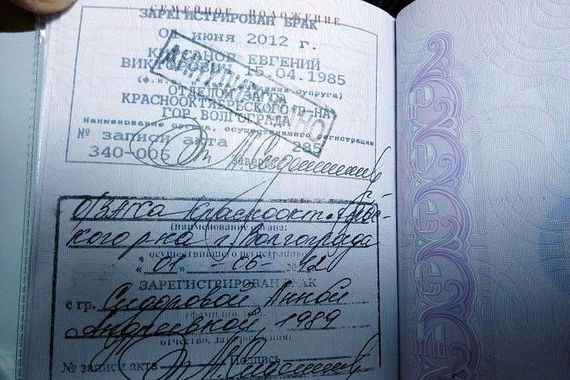 СЕМЕЙНОЕ ПОЛОЖЕНИЕ
ЗАРЕГИСТРИРОВАН БРАК
01 июня 2012 г.
ЕВГЕНИЙ
ВИКТОРОВИЧ 15.04.1985
ОТДЕЛОМ ЗАГСА
КРАСНООКТЯБРЬСКОГО Р-НА
ГОР. ВОЛГОГРАДА
Наименование органа, осуществившего регистрации
№ записи акта 285
340-006 Заверил
О/ЗАГСа Краснооктябрьс-
кого р-на г. Волгограда
(наименование органа:
осуществившего регистрацию)
"01" - 06 - 2012
ЗАРЕГИСТРИРОВАН БРАК
с гр. Сидоровой Анной
Андреевной, 1989
отчество, дата рождения)
№ записи акта Подпись